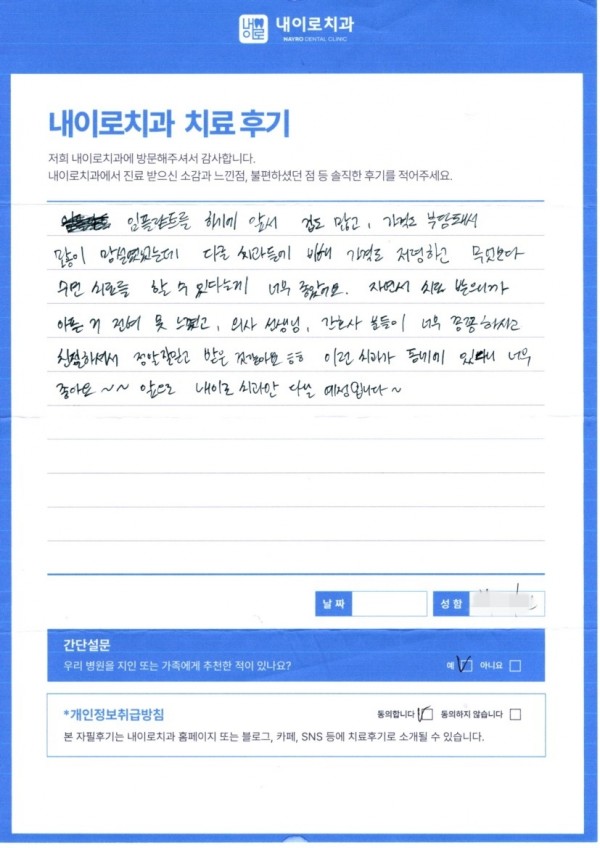 내이로
내이로치과
NAYRO DENTAL CLINIC
내이로치과 치료 후기
저희 내이로치과에 방문해주셔서 감사합니다.
내이로치과에서 진료 받으신 소감과 느낀점, 불편하셨던 점 등 솔직한 후기를 적어주세요.
임플란트를 하기에 앞서 겁도 많고, 가격도 부담돼서
많이 망설였었는데 다른 치과들에 비해 가격도 저렴하고 무엇보다
수면 치료를 할 수 있다는게 너무 좋았어요. 자면서 치료 받으니까
아픈 거 전혀 못 느꼈고, 의사 선생님, 간호사 분들이 너무 꼼꼼하시고
친절하셔서 정말 잘 받은 것 같아요 ㅎㅎ 이런 치과가 동네에 있다니 너무
좋아요 ~~ 앞으로 내이로 치과만 다닐 예정입니다~
날짜
성함
간단설문
우리 병원을 지인 또는 가족에게 추천한 적이 있나요? 예 아니요
*개인정보취급방침 동의합니다 동의하지 않습니다
본 자필후기는 내이로치과 홈페이지 또는 블로그, 카페, SNS 등에 치료후기로 소개될 수 있습니다.